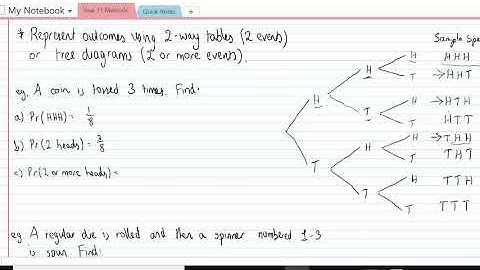 My Notebook
Year 11 Methods
Quick Notes
* Represent outcomes using 2-way tables (2 events)
or tree diagrams (2 or more events).
Sample Spa
eg. A coin is tossed 3 times. Find:
a) Pr(HHH) = 1/8
b) Pr(2 heads) = 3/8
c) Pr(2 or more heads) =
H
T
H
T
H
T
H
T
H
T
H
T
H
T
HHH
→HHT
→HTH
HTT
→THH
THT
TTH
TTT
eg. A regular die is rolled and then a spinner numbered 1-3
is spun. Find: